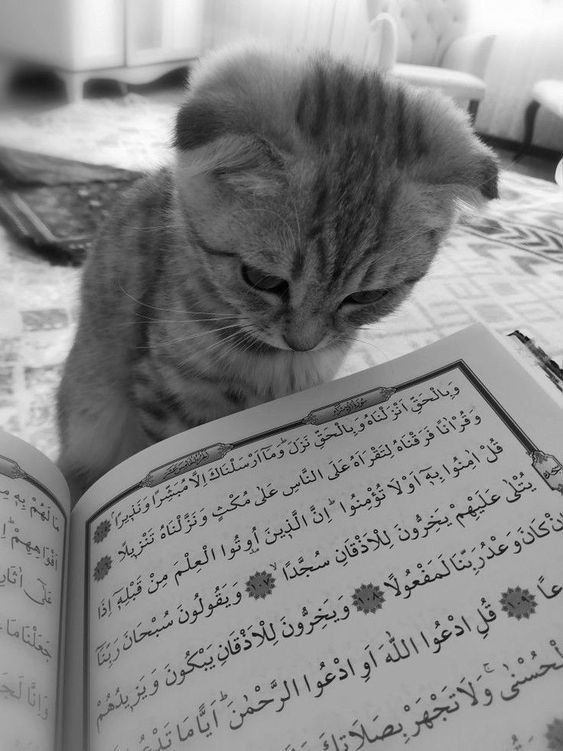 وَبِالْحَقِّ اَنْزَلْنَاهُ وَبِالْحَقِّ نَزَلَ وَمَٓا اَرْسَلْنَاكَ اِلَّا مُبَشِّرًا وَنَذ۪يرًا
وَقُرْاٰنًا فَرَقْنَاهُ لِتَقْرَاَهُ عَلَى النَّاسِ عَلٰى مُكْثٍ وَنَزَّلْنَاهُ تَنْز۪يلًا
قُلْ اٰمِنُوا بِه۪ٓ اَوْ لَا تُؤْمِنُوا اِنَّ الَّذ۪ينَ اُو۫تُوا الْعِلْمَ مِنْ قَبْلِه۪ٓ اِذَا
يُتْلٰى عَلَيْهِمْ يَخِرُّونَ لِلْاَذْقَانِ سُجَّدًا ١٠٧ وَيَقُولُونَ سُبْحَانَ رَبِّنَٓا
كَانَ وَعْدُ رَبِّنَا لَمَفْعُولًا ١٠٨ وَيَخِرُّونَ لِلْاَذْقَانِ يَبْكُونَ وَيَز۪يدُهُمْ
١٠٩ قُلِ ادْعُوا اللّٰهَ اَوِ ادْعُوا الرَّحْمٰنَ اَيًّا مَا
الْحُسْنٰى وَلَا تَجْهَرْ بِصَلَاتِكَ
لَهُمْ بِه۪
اَفْوَاهِهِمْ
عَلٰٓى
جَعَلْنَا مَا
وَاِنَّا